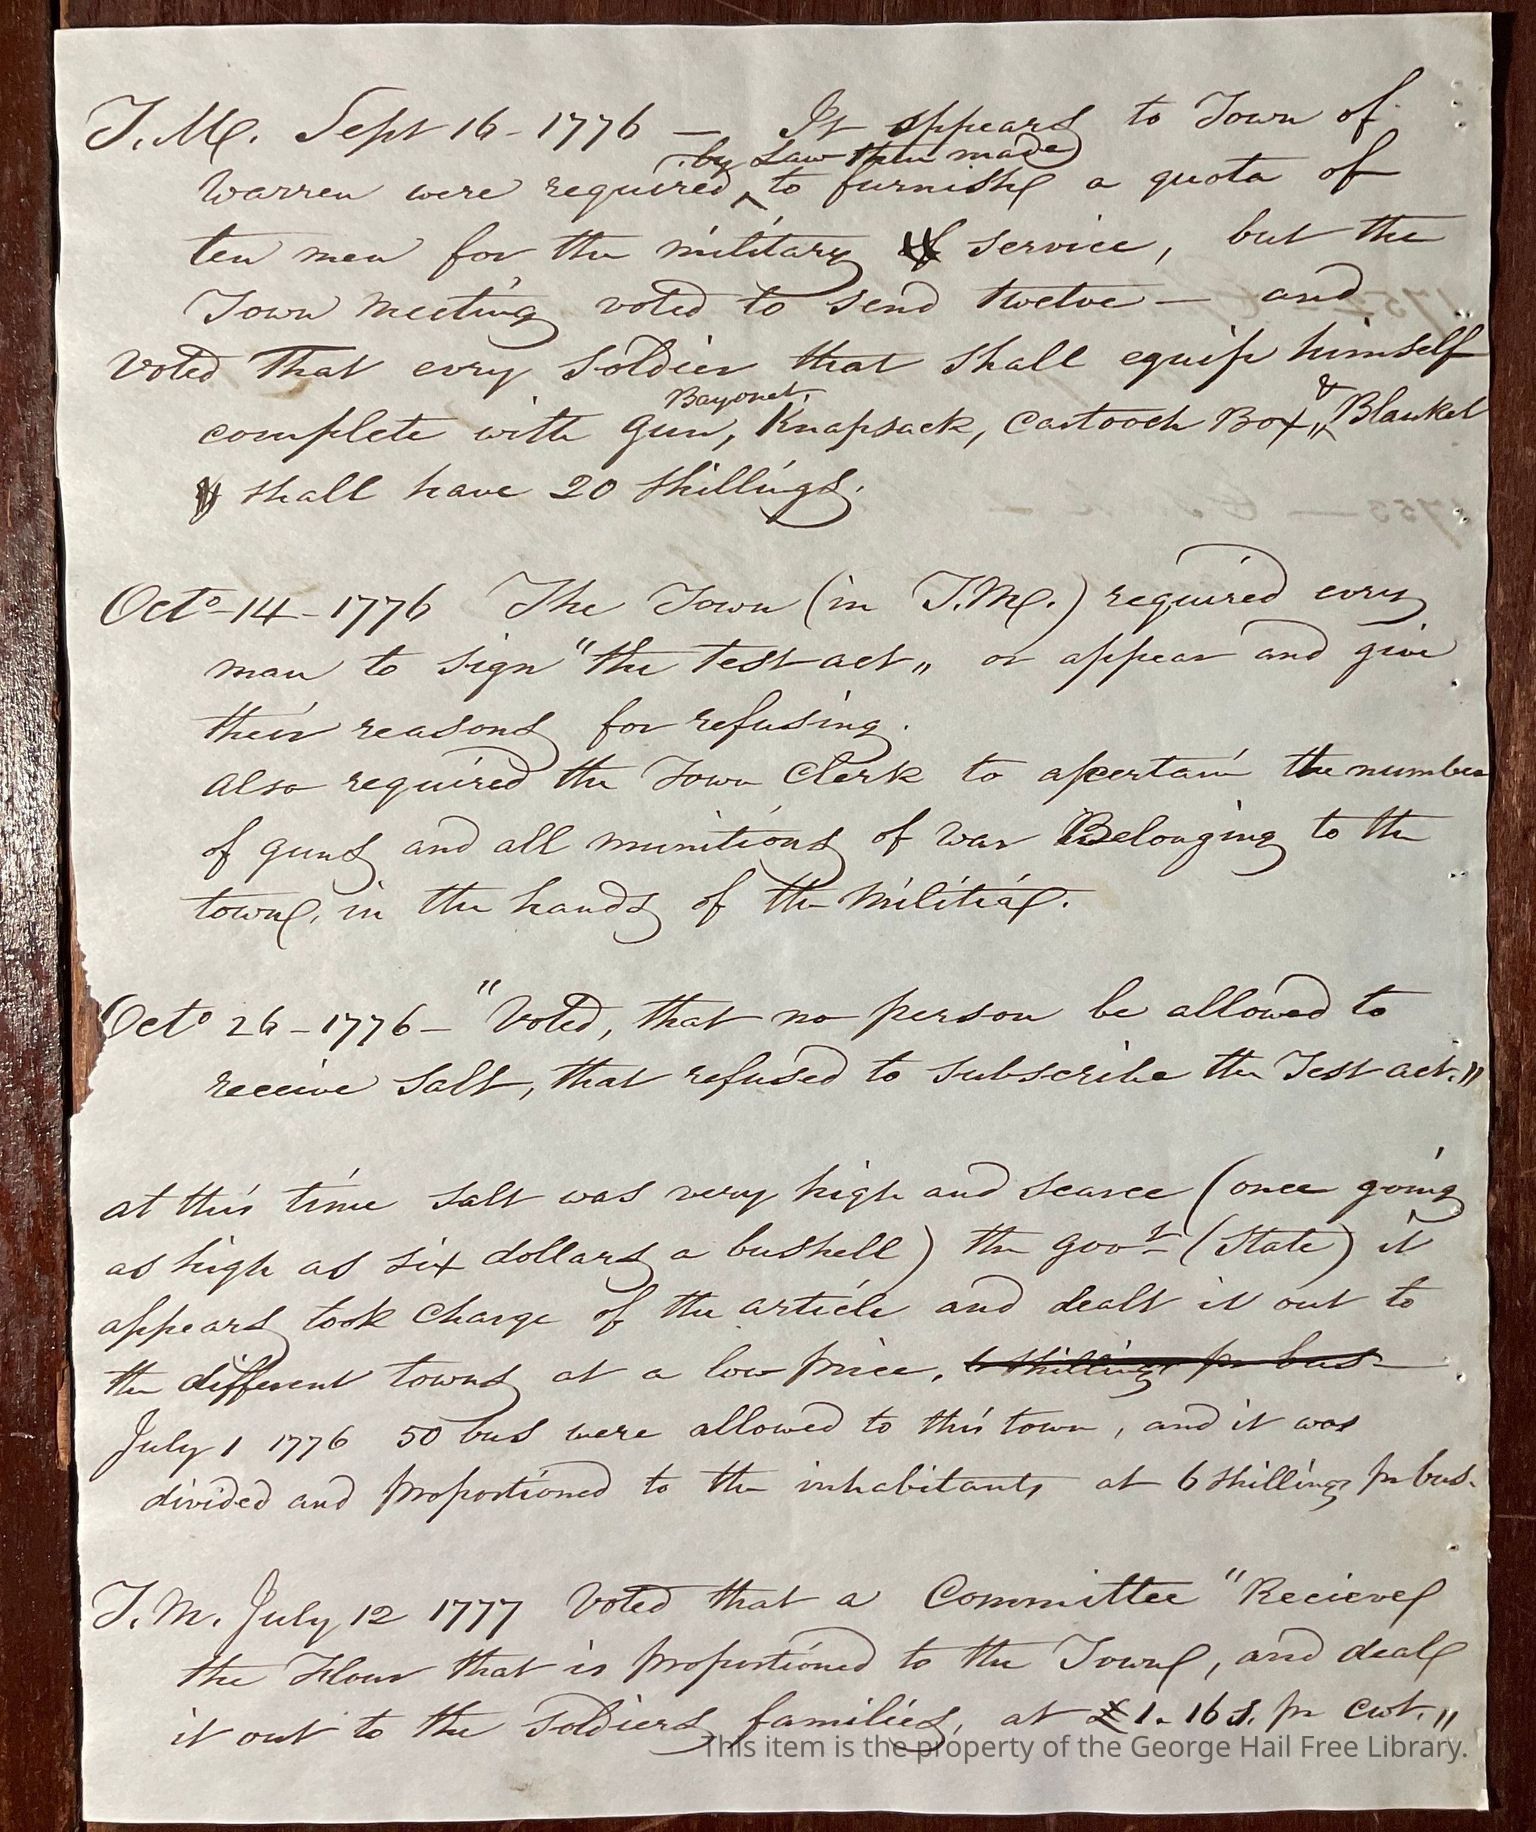 T. M. Sept 16 - 1776 — It appears to Town of
by Law then made
Warren were required ^ to furnish a quota of
ten men for the military service, but the
Town Meeting voted to send twelve — and
Voted That evry Soldier that shall equip himself
Bayonet &
complete with Gun, Knapsack, Cartooch Box, Blanket
shall have 20 Shillings.
Octo - 14 - 1776 The Town (in T.M.) required evry
man to sign "the test act" or appear and give
their reasons for refusing.
also required the Town Clerk to ascertain the number
of guns and all munitions of war Belonging to the
town, in the hands of the Militia.
Octo 26 - 1776 - "Voted, that no person be allowed to
receive Salt, that refused to subscribe the Test act."
at this time Salt was very high and scarce (once going
as high as six dollars a bushell) the govt (State) it
appears took charge of the article and dealt it out to
the different towns at a low price, 6 shillings pr bus
July 1 1776 50 bus were allowed to this town, and it was
divided and proportioned to the inhabitants at 6 shillings pr bus.
T. M. July 12 1777 Voted that a Committee "Recieve
the Flour that is proportioned to the Town, and deal
it out to the Soldiers families, at £1. 16 s. pr cwt."
This item is the property of the George Hail Free Library.